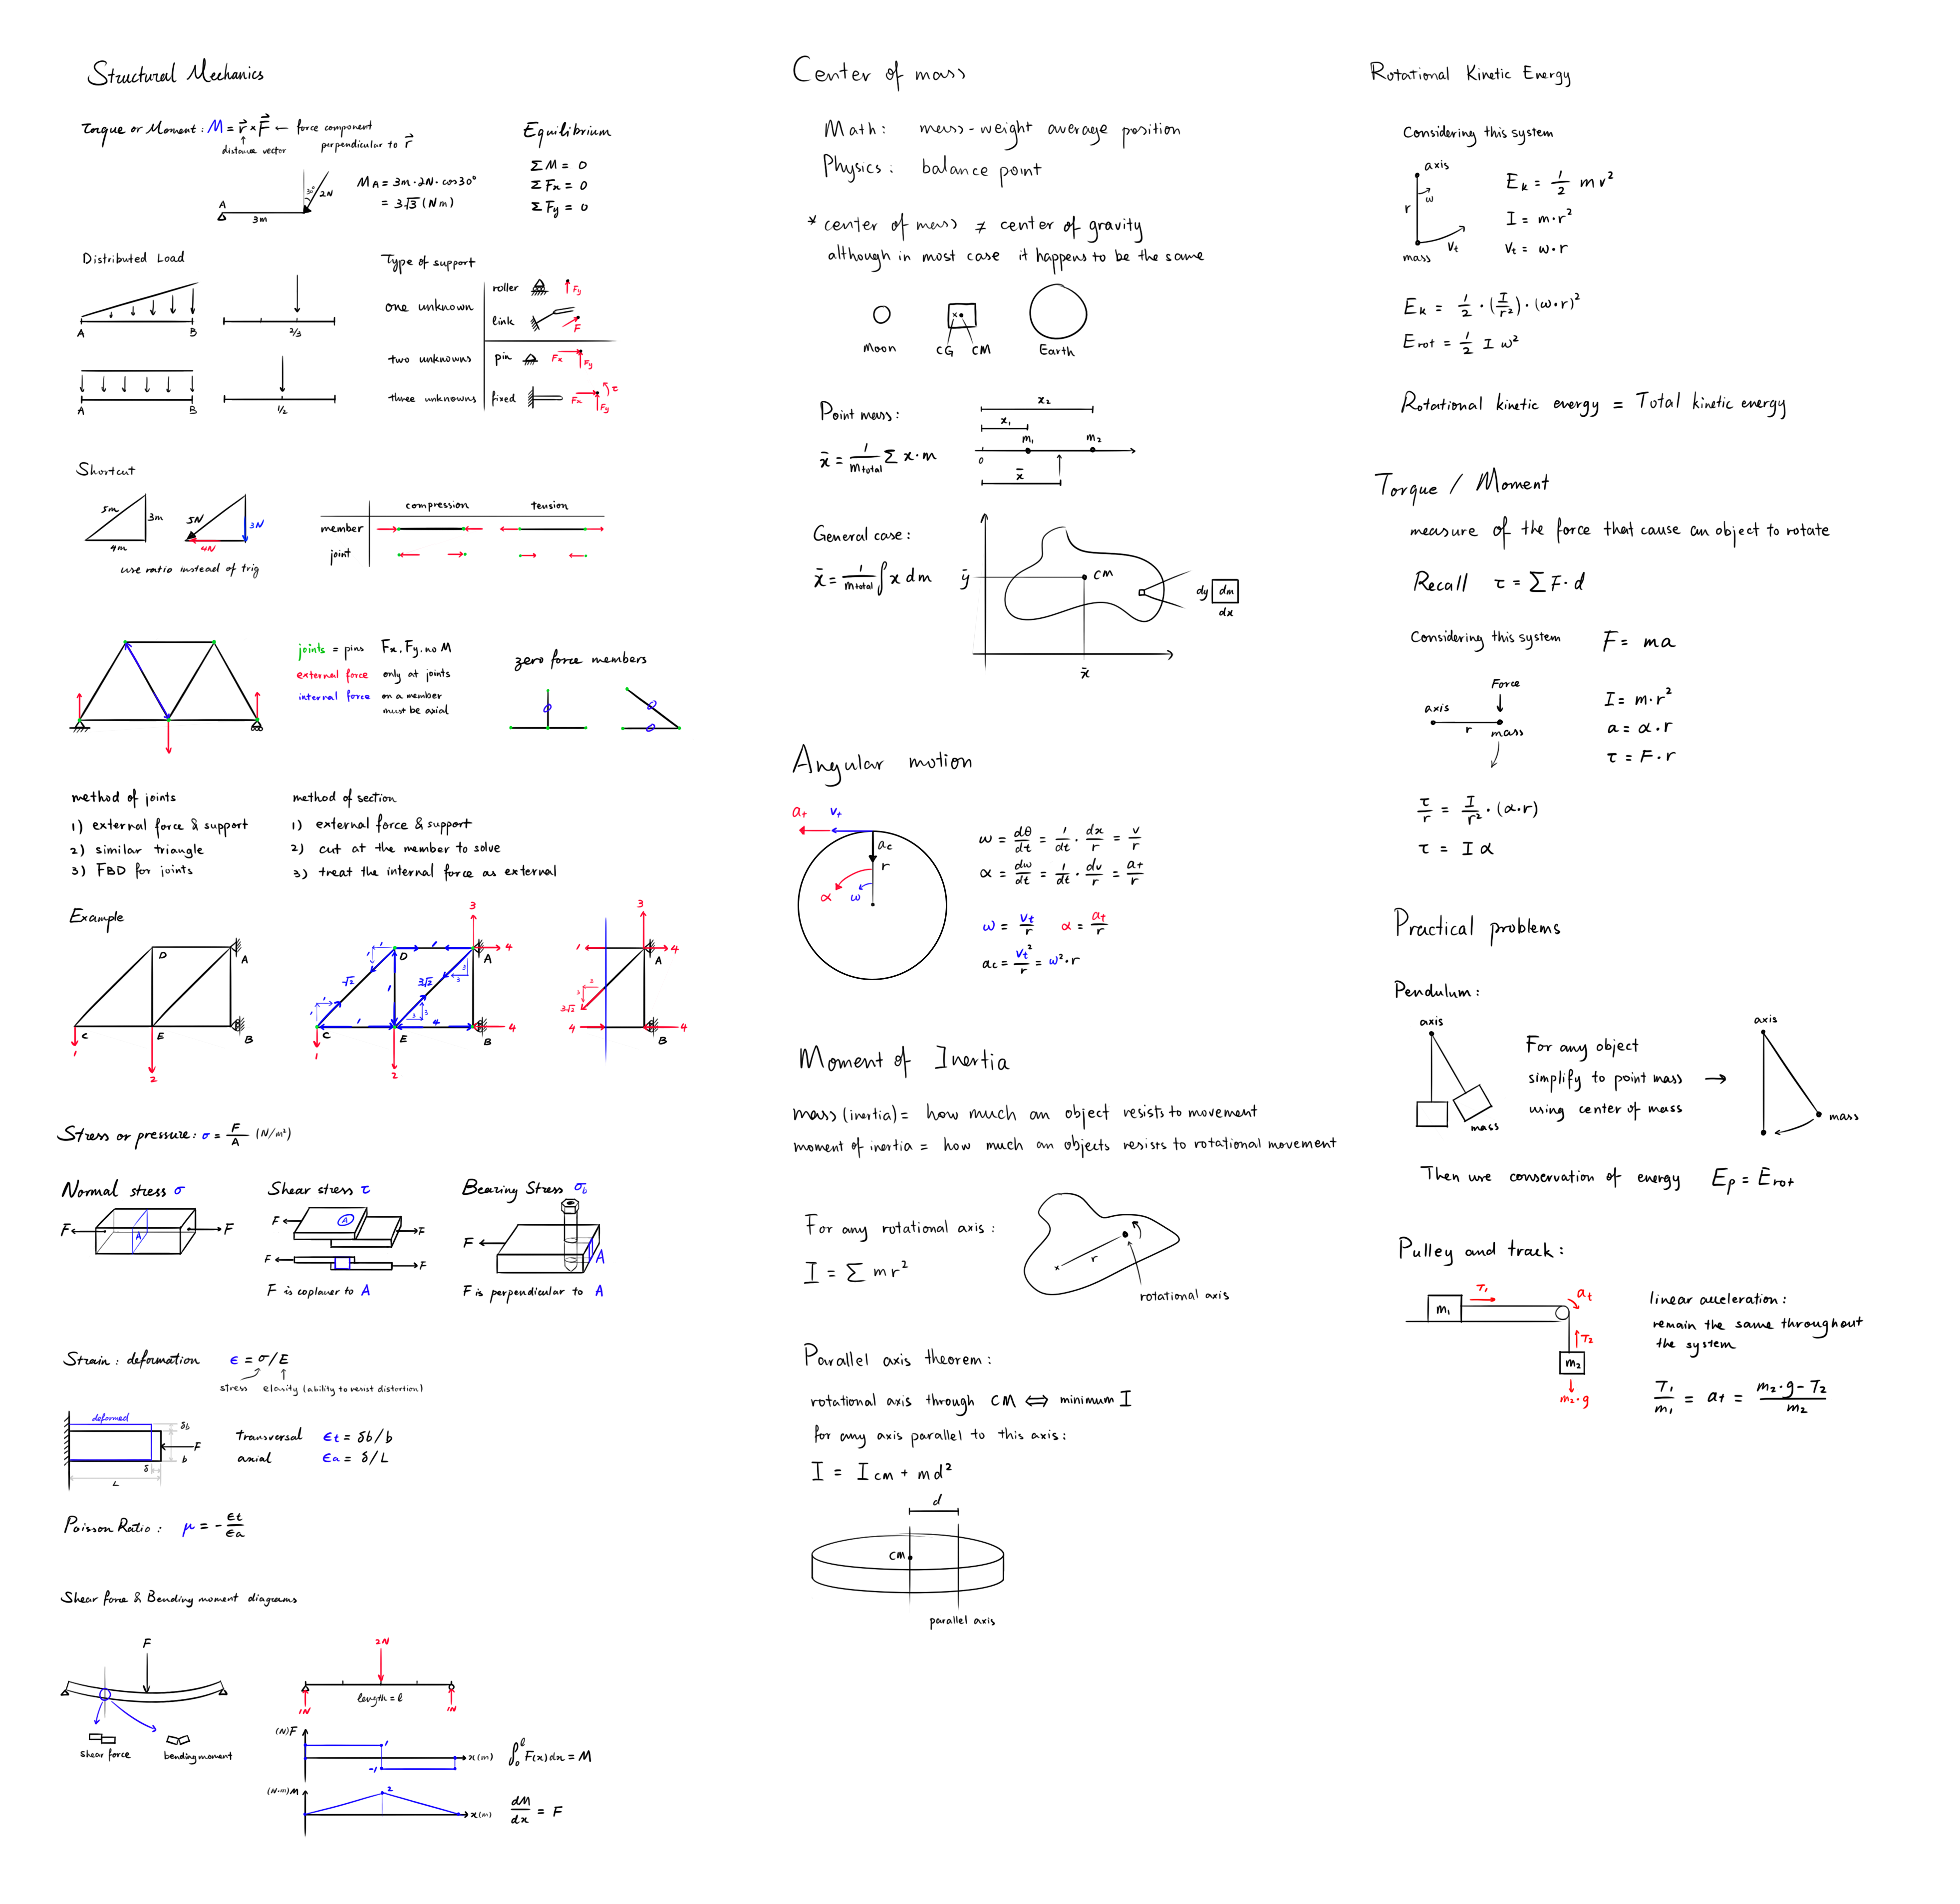 Structural Mechanics
Torque or Moment: M = r × F ← force component perpendicular to r
↑
distance vector
30°
2N
A
3m
MA = 3m·2N·cos30°
= 3√3 (Nm)
Equilibrium
ΣM = 0
ΣFx = 0
ΣFy = 0
Distributed Load
A
B
2/3
A
B
1/2
Type of support
one unknown
roller
Fy
link
F
two unknowns
pin
Fx
Fy
three unknowns
fixed
Fx
Fy
τ
Shortcut
5m
3m
4m
5N
3N
4N
use ratio instead of trig
compression
tension
member
joint
joints = pins Fx, Fy, no M
external force only at joints
internal force on a member
must be axial
zero force members
0
0
0
method of joints
1) external force & support
2) similar triangle
3) FBD for joints
method of section
1) external force & support
2) cut at the member to solve
3) treat the internal force as external
Example
D
A
C
E
B
1
2
3
4
D
1
A
1
1
√2
1
3√2
3
3
1
1
3
3
1
4
4
C
E
B
1
2
3
1
4
A
3
3
3√2
4
4
B
Stress or pressure: σ = F/A (N/m²)
Normal stress σ
F
A
F
Shear stress τ
F
A
F
F
F
F is coplaner to A
Bearing Stress σb
F
A
F is perpendicular to A
Strain: deformation ϵ = σ/E
stress elasity (ability to resist distortion)
deformed
δb
F
b
δ
L
transversal ϵt = δb/b
axial ϵa = δ/L
Poisson Ratio: μ = - ϵt/ϵa
Shear force & Bending moment diagrams
F
shear force
bending moment
2N
length = l
1N
1N
(N)F
1
-1
x(m)
∫₀ˡ F(x)dx = M
(N·m)M
2
x(m)
dM/dx = F
Center of mass
Math: mass-weight average position
Physics: balance point
* center of mass ≠ center of gravity
although in most case it happens to be the same
Moon
CG
CM
Earth
Point mass:
x̄ = 1/mtotal Σ x·m
x2
x1
m1
m2
0
x̄
General case:
x̄ = 1/mtotal ∫ x dm
ȳ
CM
dy
dm
dx
x̄
Angular motion
at
vt
ac
r
α
ω
ω = dθ/dt = 1/dt · dx/r = v/r
α = dω/dt = 1/dt · dv/r = at/r
ω = vt/r α = at/r
ac = vt²/r = ω²·r
Moment of Inertia
mass (inertia) = how much an object resists to movement
moment of inertia = how much an objects resists to rotational movement
For any rotational axis:
I = Σ mr²
r
rotational axis
Parallel axis theorem:
rotational axis through CM ⇔ minimum I
for any axis parallel to this axis:
I = Icm + md²
d
CM
parallel axis
Rotational Kinetic Energy
Considering this system
axis
ω
r
vt
mass
Ek = 1/2 mv²
I = m·r²
vt = ω·r
Ek = 1/2 · (I/r²) · (ω·r)²
Erot = 1/2 I ω²
Rotational kinetic energy = Total kinetic energy
Torque / Moment
measure of the force that cause an object to rotate
Recall τ = Σ F·d
Considering this system F = ma
Force
axis
r
mass
I = m·r²
a = α·r
τ = F·r
τ/r = I/r² · (α·r)
τ = I α
Practical problems
Pendulum:
axis
mass
For any object
simplify to point mass →
using center of mass
axis
mass
Then use conservation of energy Ep = Erot
Pulley and track:
m1
T1
at
T2
m2
m2·g
linear acceleration:
remain the same throughout
the system
T1/m1 = at = m2·g-T2/m2